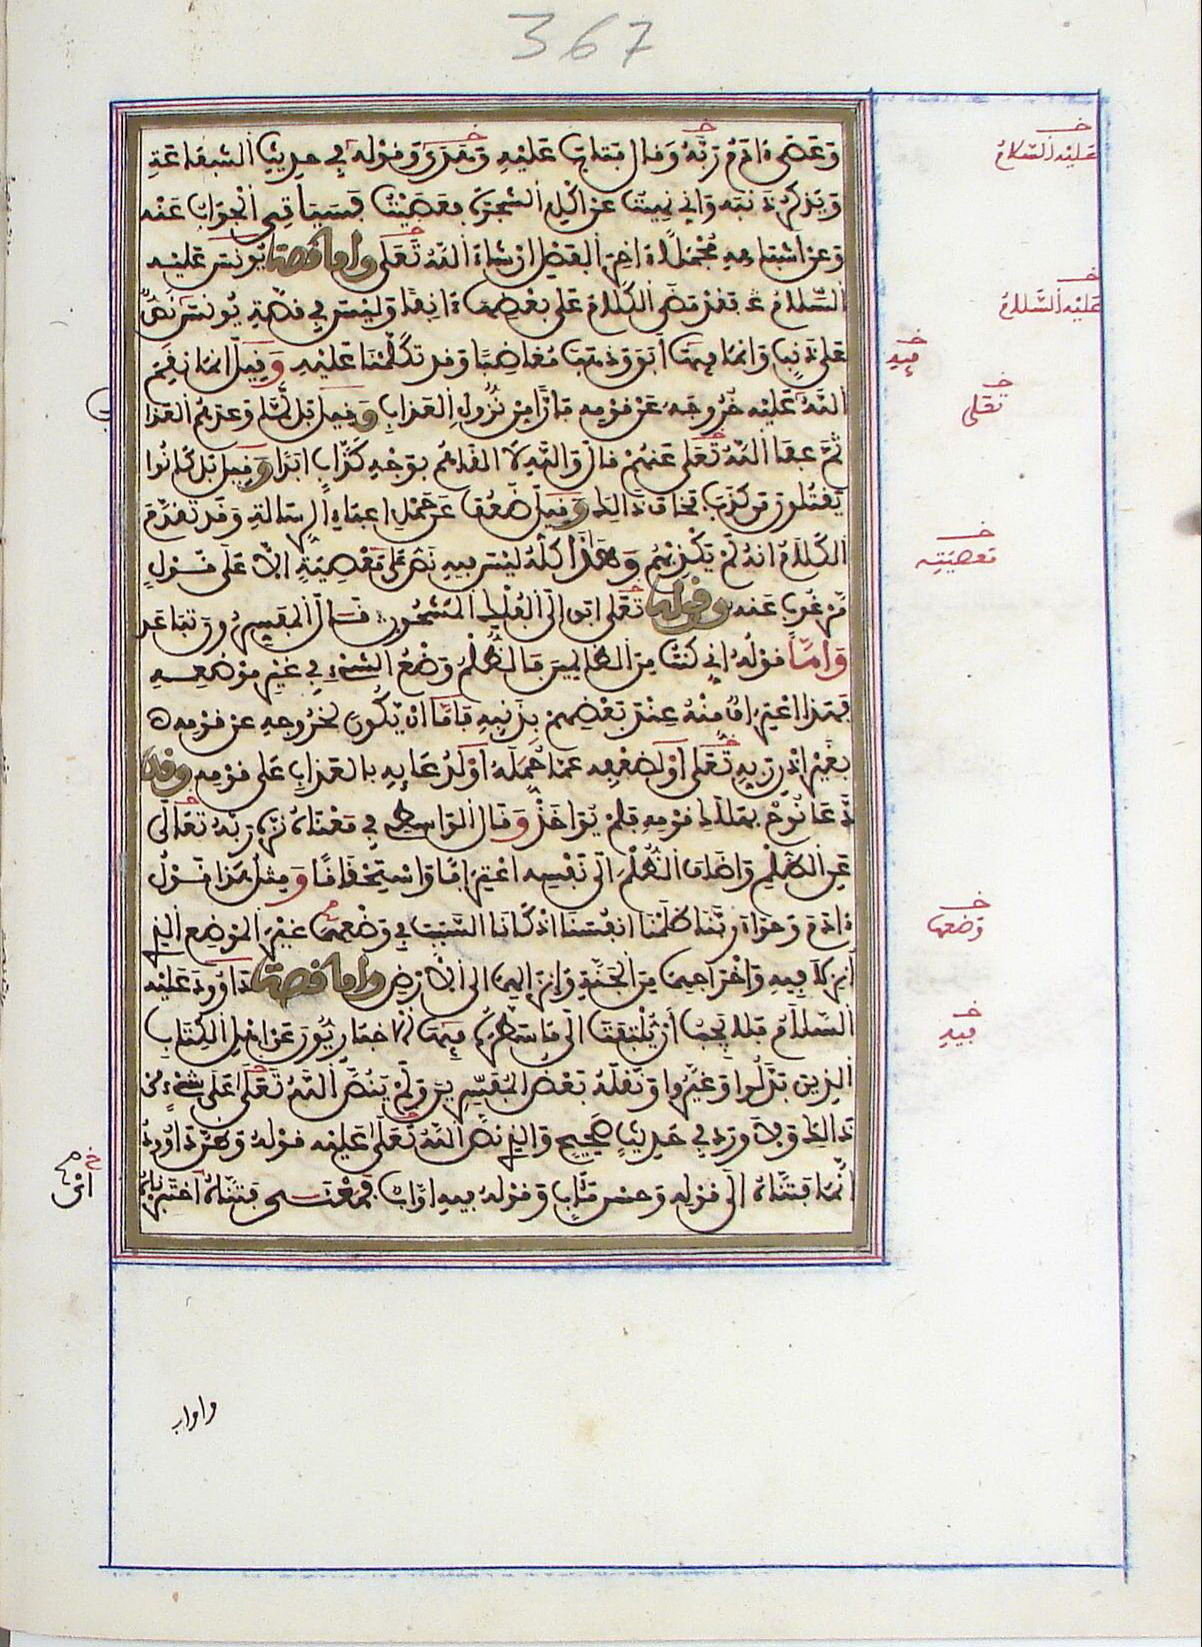 367
وعصى ءادم ربه وقال فتاب عليه وهدى وقوله في حديث الشفاعة
ويذكر ذنبه واني نهيت عن اكل الشجرة فعصيت فسياتي الجواب عنه
وعن اشباهه مجملا ءاخر الفصل ان شاء الله تعلى واما قصة يونس عليه
السلام فقد مضى الكلام على بعضها ءانفا وليس في قصة يونس نص
على ذنب وانما فيها ابق وذهب مغاضبا وقد تكلمنا عليه وقيل انما نقم
الله عليه خروجه عن قومه فارا من نزول العذاب وقيل بل لما وعدهم العذاب
ثم عفا الله تعلى عنهم قال والله لا القاهم بوجه كذاب ابدا وقيل بل كانوا
يقتلون من كذب فخاف ذالك وقيل ضعف عن حمل اعباء الرسالة وقد تقدم
الكلام انه لم يكذبهم وهذا كله ليس فيه نص على معصية الا على قول
مرغوب عنه وقوله تعلى ابق الى الفلك المشحون قال المفسرون تباعد
واما قوله اني كنت من الظالمين فالظلم وضع الشيء في غير موضعه
فهذا اعتراف منه عند بعضهم بذنبه فاما ان يكون لخروجه عن قومه
بغير اذن ربه تعلى او لضعفه عما حمله او لدعائه بالعذاب على قومه وقد
دعا نوح بهلاك قومه فلم يواخذ وقال الواسطي في معناه نزه ربه تعالى
عن الظلم واضاف الظلم الى نفسه اعترافا واستحقاقا ومثل هذا قول
ءادم وحواء ربنا ظلمنا انفسنا اذ كانا السبب في وضعهما غير الموضع الذي
انزلا فيه واخراجهما من الجنة وانزالهما الى الارض واما قصة داوود عليه
السلام فلا يجب ان يلتفت الى ما سطره فيها الاخباريون عن اهل الكتاب
الذين بدلوا وغيروا ونقله بعض المفسرين ولم ينص الله تعلى على شيء من
ذالك ولا ورد في حديث صحيح والذي نص الله تعلى عليه قوله وظن داوود
انما فتناه الى قوله وحسن مئاب وقوله فيه اواب فمعنى فتناه اختبرناه
عليه السلام
عليه السلام
فيه
تعلى
معصيته
وضعها
فيه
واواب